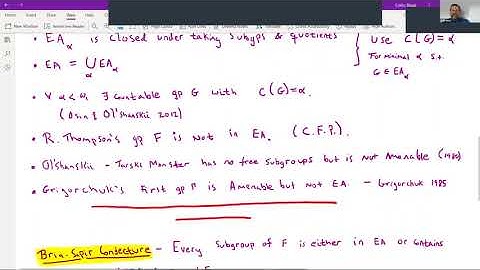 • EA_α is closed under taking subgps & quotients
Use C(G)=α
For minimal α s.t.
G ∈ EA_α
• EA = ⋃_α EA_α
• ∀ α<ω, ∃ countable gp G with C(G)=α.
(Osin & Ol'shanskii 2012)
• R. Thompson's gp F is not in EA. (C.F.P.).
• Ol'shanskii - Tarski Monster has no free subgroups but is not Amenable (1980)
• Grigorchuk's First gp Γ is Amenable but not EA - Grigorchuk 1985
Brin-Sapir Conjecture - Every subgroup of F is either in EA or contains